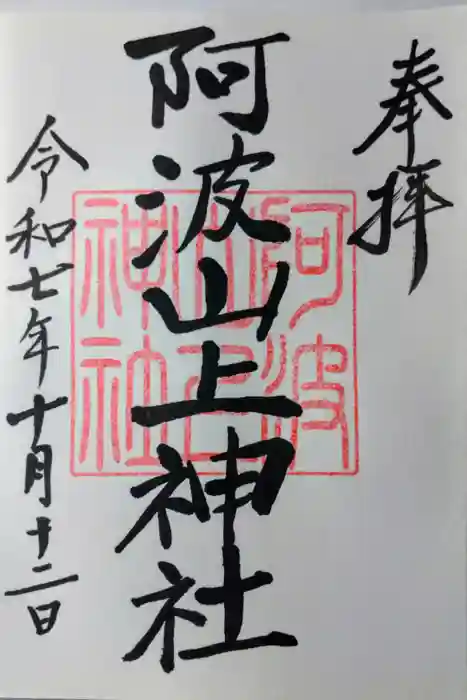 奉拝
阿波山上神社
阿波山上神社
令和七年十月十二日